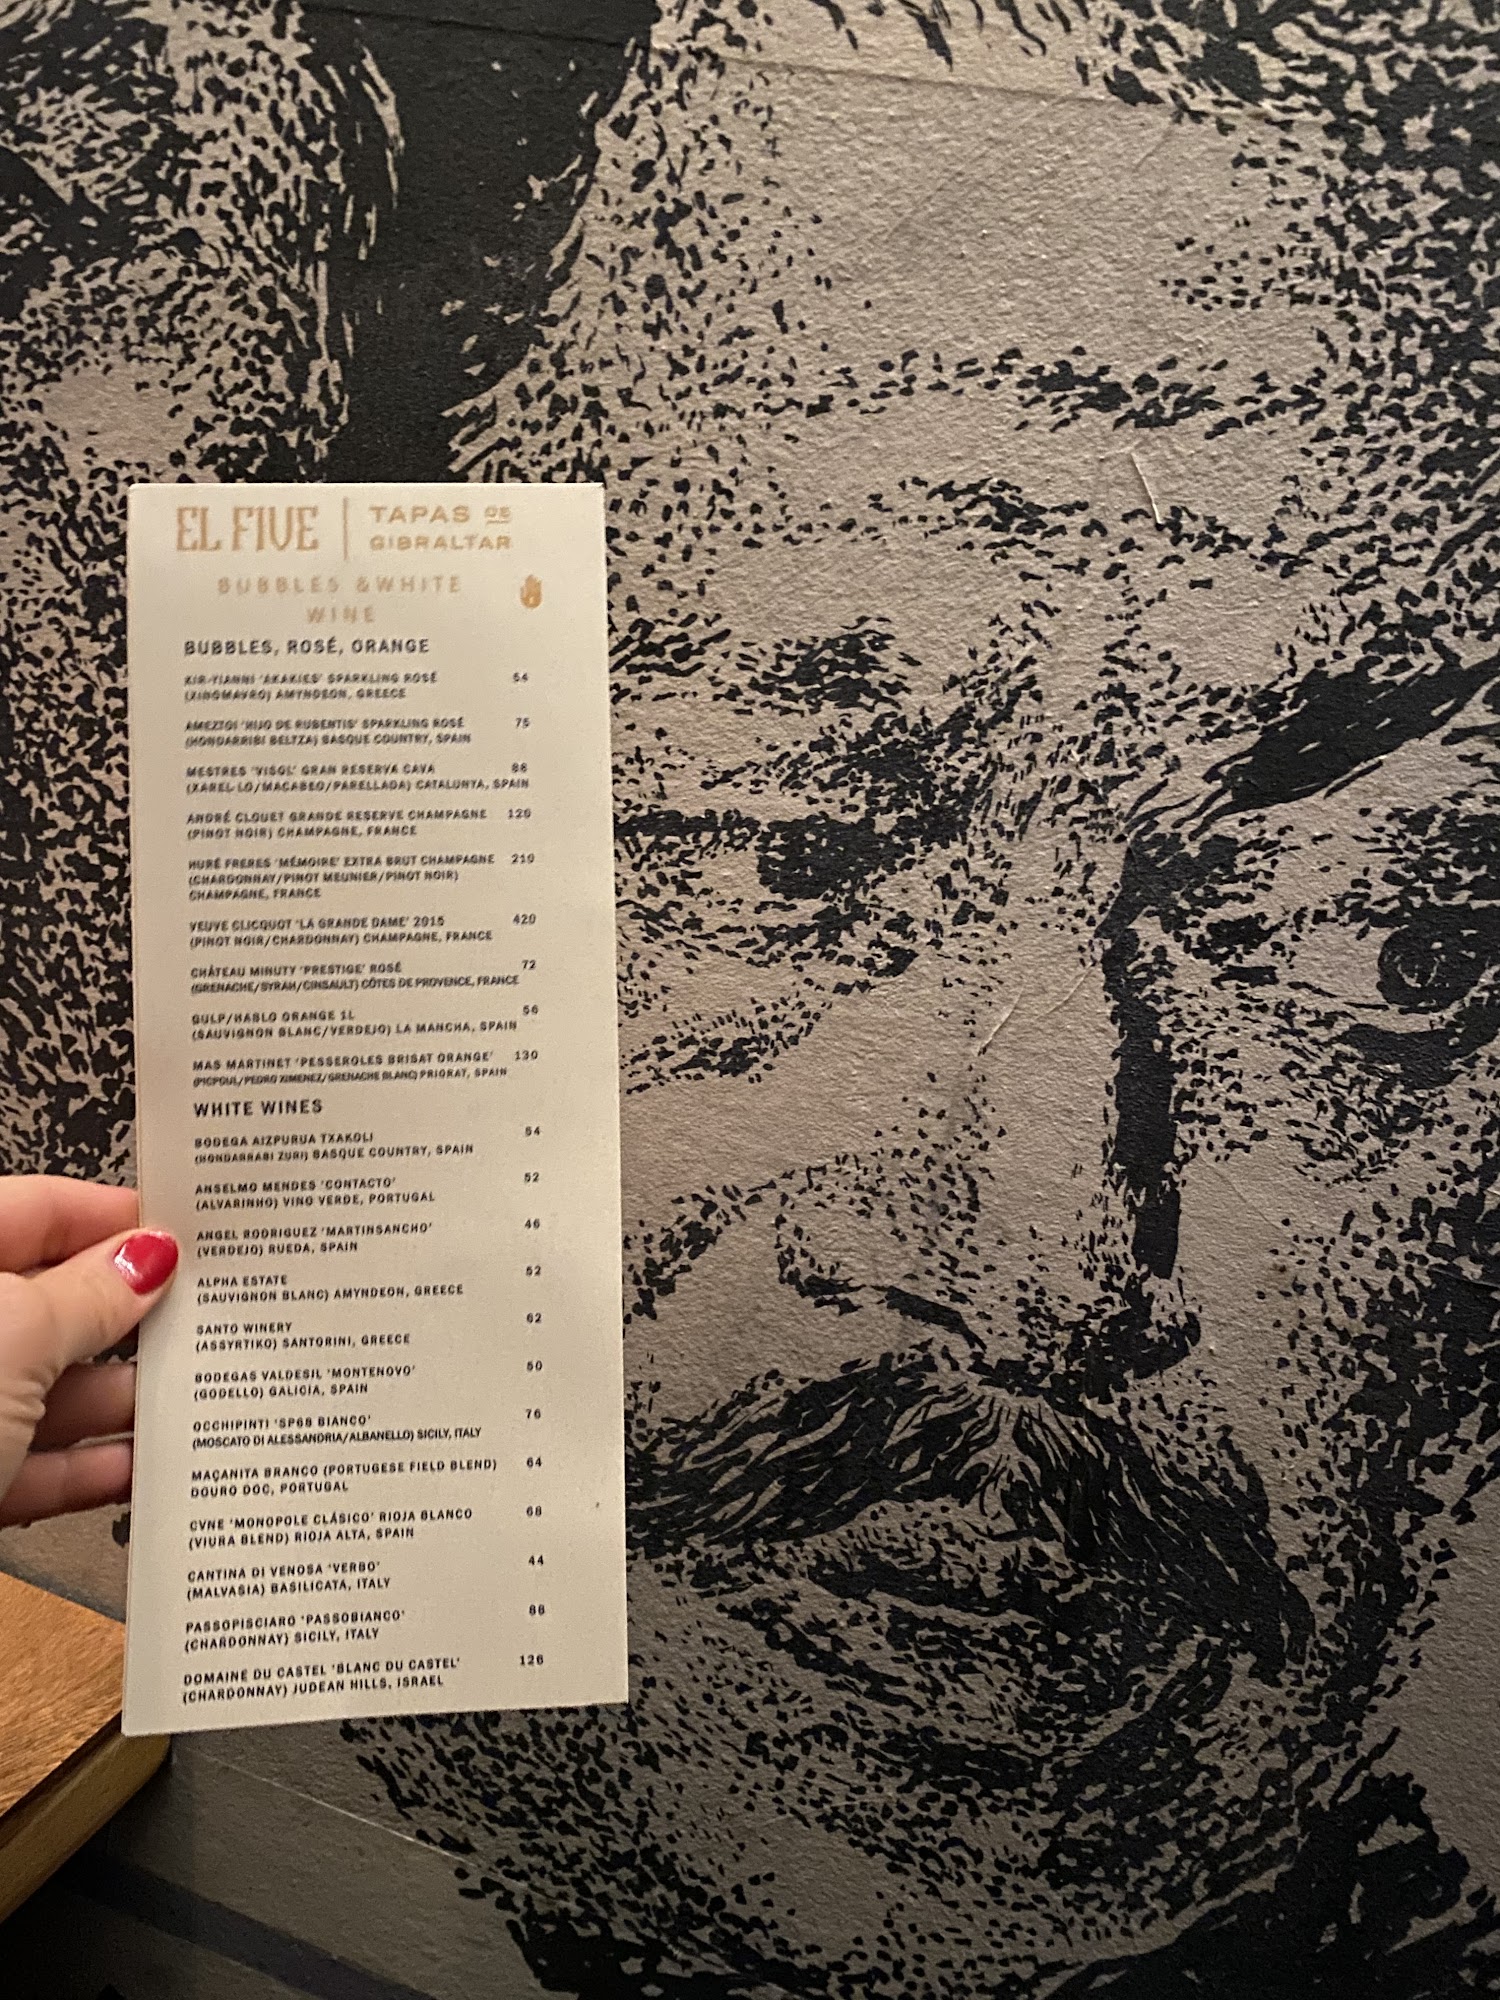 EL FIVE
TAPAS DE
GIBRALTAR
BUBBLES & WHITE
WINE
BUBBLES, ROSÉ, ORANGE
KIR-YIANNI 'AKAKIES' SPARKLING ROSÉ 54
(XINOMAVRO) AMYNDEON, GREECE
AMEZTOI 'HIJO DE RUBENTIS' SPARKLING ROSÉ 75
(HONDARRIBI BELTZA) BASQUE COUNTRY, SPAIN
MESTRES 'VISOL' GRAN RESERVA CAVA 88
(XAREL·LO/MACABEO/PARELLADA) CATALUNYA, SPAIN
ANDRÉ CLOUET GRANDE RESERVE CHAMPAGNE 120
(PINOT NOIR) CHAMPAGNE, FRANCE
HURÉ FRERES 'MÉMOIRE' EXTRA BRUT CHAMPAGNE 210
(CHARDONNAY/PINOT MEUNIER/PINOT NOIR)
CHAMPAGNE, FRANCE
VEUVE CLICQUOT 'LA GRANDE DAME' 2015 420
(PINOT NOIR/CHARDONNAY) CHAMPAGNE, FRANCE
CHÂTEAU MINUTY 'PRESTIGE' ROSÉ 72
(GRENACHE/SYRAH/CINSAULT) CÔTES DE PROVENCE, FRANCE
GULP/HABLO ORANGE 1L 56
(SAUVIGNON BLANC/VERDEJO) LA MANCHA, SPAIN
MAS MARTINET 'PESSEROLES BRISAT ORANGE' 130
(PICPOUL/PEDRO XIMENEZ/GRENACHE BLANC) PRIORAT, SPAIN
WHITE WINES
BODEGA AIZPURUA TXAKOLI 54
(HONDARRABI ZURI) BASQUE COUNTRY, SPAIN
ANSELMO MENDES 'CONTACTO' 52
(ALVARINHO) VINO VERDE, PORTUGAL
ANGEL RODRIGUEZ 'MARTINSANCHO' 46
(VERDEJO) RUEDA, SPAIN
ALPHA ESTATE 52
(SAUVIGNON BLANC) AMYNDEON, GREECE
SANTO WINERY 62
(ASSYRTIKO) SANTORINI, GREECE
BODEGAS VALDESIL 'MONTENOVO' 50
(GODELLO) GALICIA, SPAIN
OCCHIPINTI 'SP68 BIANCO' 76
(MOSCATO DI ALESSANDRIA/ALBANELLO) SICILY, ITALY
MAÇANITA BRANCO (PORTUGESE FIELD BLEND) 64
DOURO DOC, PORTUGAL
CVNE 'MONOPOLE CLÁSICO' RIOJA BLANCO 68
(VIURA BLEND) RIOJA ALTA, SPAIN
CANTINA DI VENOSA 'VERBO' 44
(MALVASIA) BASILICATA, ITALY
PASSOPISCIARO 'PASSOBIANCO' 88
(CHARDONNAY) SICILY, ITALY
DOMAINE DU CASTEL 'BLANC DU CASTEL' 126
(CHARDONNAY) JUDEAN HILLS, ISRAEL